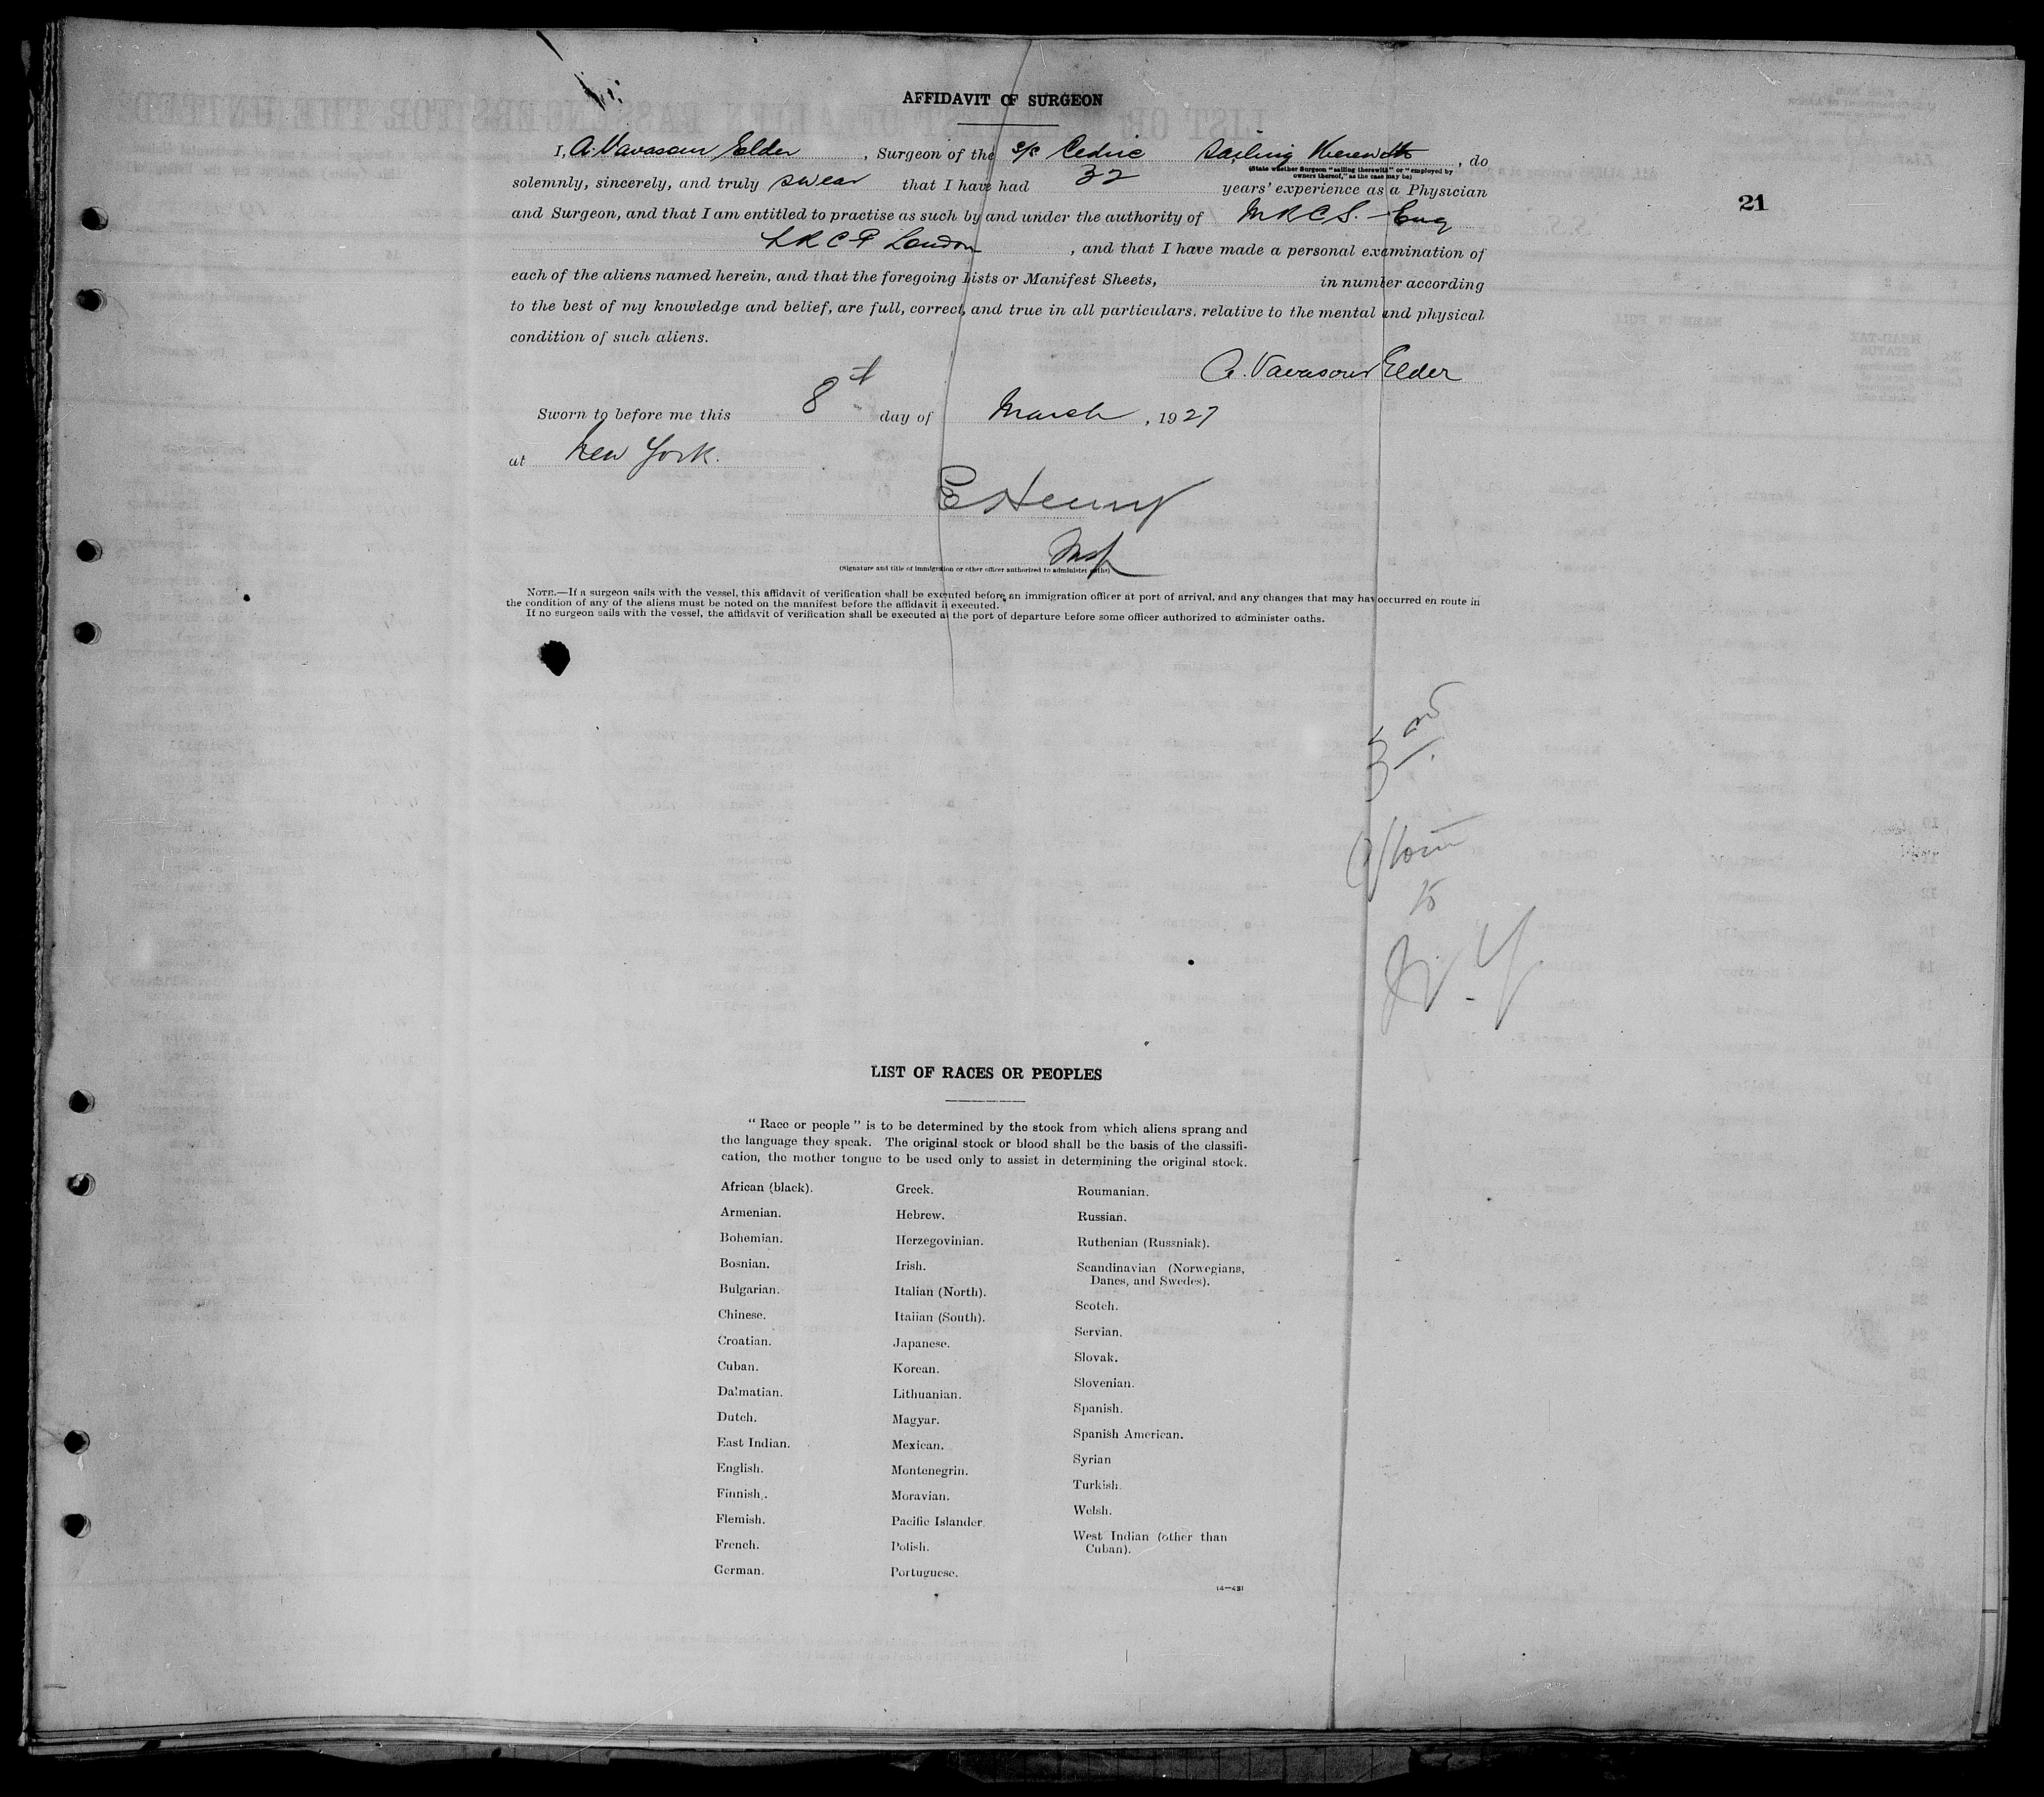 AFFIDAVIT OF SURGEON
I, A. Vavasour Elder, Surgeon of the s/s Cedric Sailing therewith, do
(State whether Surgeon "sailing therewith" or "employed by
owners thereof," as the case may be)
solemnly, sincerely, and truly swear that I have had 32 years' experience as a Physician
and Surgeon, and that I am entitled to practise as such by and under the authority of MRCS. Eng
LRCP London, and that I have made a personal examination of
each of the aliens named herein, and that the foregoing Lists or Manifest Sheets, in number according
to the best of my knowledge and belief, are full, correct, and true in all particulars, relative to the mental and physical
condition of such aliens.
A. Vavasour Elder
Sworn to before me this 8th day of March, 1927
at New York.
E Henry
Insp
(Signature and title of immigration or other officer authorized to administer oaths)
NOTE.—If a surgeon sails with the vessel, this affidavit of verification shall be executed before an immigration officer at port of arrival, and any changes that may have occurred en route in
the condition of any of the aliens must be noted on the manifest before the affidavit is executed.
If no surgeon sails with the vessel, the affidavit of verification shall be executed at the port of departure before some officer authorized to administer oaths.
21
3rd
to
N.Y.
LIST OF RACES OR PEOPLES
"Race or people" is to be determined by the stock from which aliens sprang and
the language they speak. The original stock or blood shall be the basis of the classifi-
cation, the mother tongue to be used only to assist in determining the original stock.
African (black).
Armenian.
Bohemian.
Bosnian.
Bulgarian.
Chinese.
Croatian.
Cuban.
Dalmatian.
Dutch.
East Indian.
English.
Finnish.
Flemish.
French.
German.
Greek.
Hebrew.
Herzegovinian.
Irish.
Italian (North).
Italian (South).
Japanese.
Korean.
Lithuanian.
Magyar.
Mexican.
Montenegrin.
Moravian.
Pacific Islander.
Polish.
Portuguese.
Roumanian.
Russian.
Ruthenian (Russniak).
Scandinavian (Norwegians,
Danes, and Swedes).
Scotch.
Servian.
Slovak.
Slovenian.
Spanish.
Spanish American.
Syrian
Turkish.
Welsh.
West Indian (other than
Cuban).
14—431